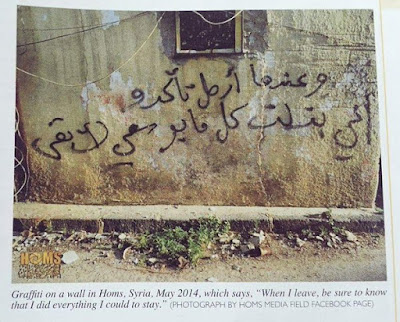 وعندما أرحل تأكدو
أنني بذلت كل ما بوسعي لأبقى
HOMS
Graffiti on a wall in Homs, Syria, May 2014, which says, "When I leave, be sure to know
that I did everything I could to stay." (PHOTOGRAPH BY HOMS MEDIA FIELD FACEBOOK PAGE)